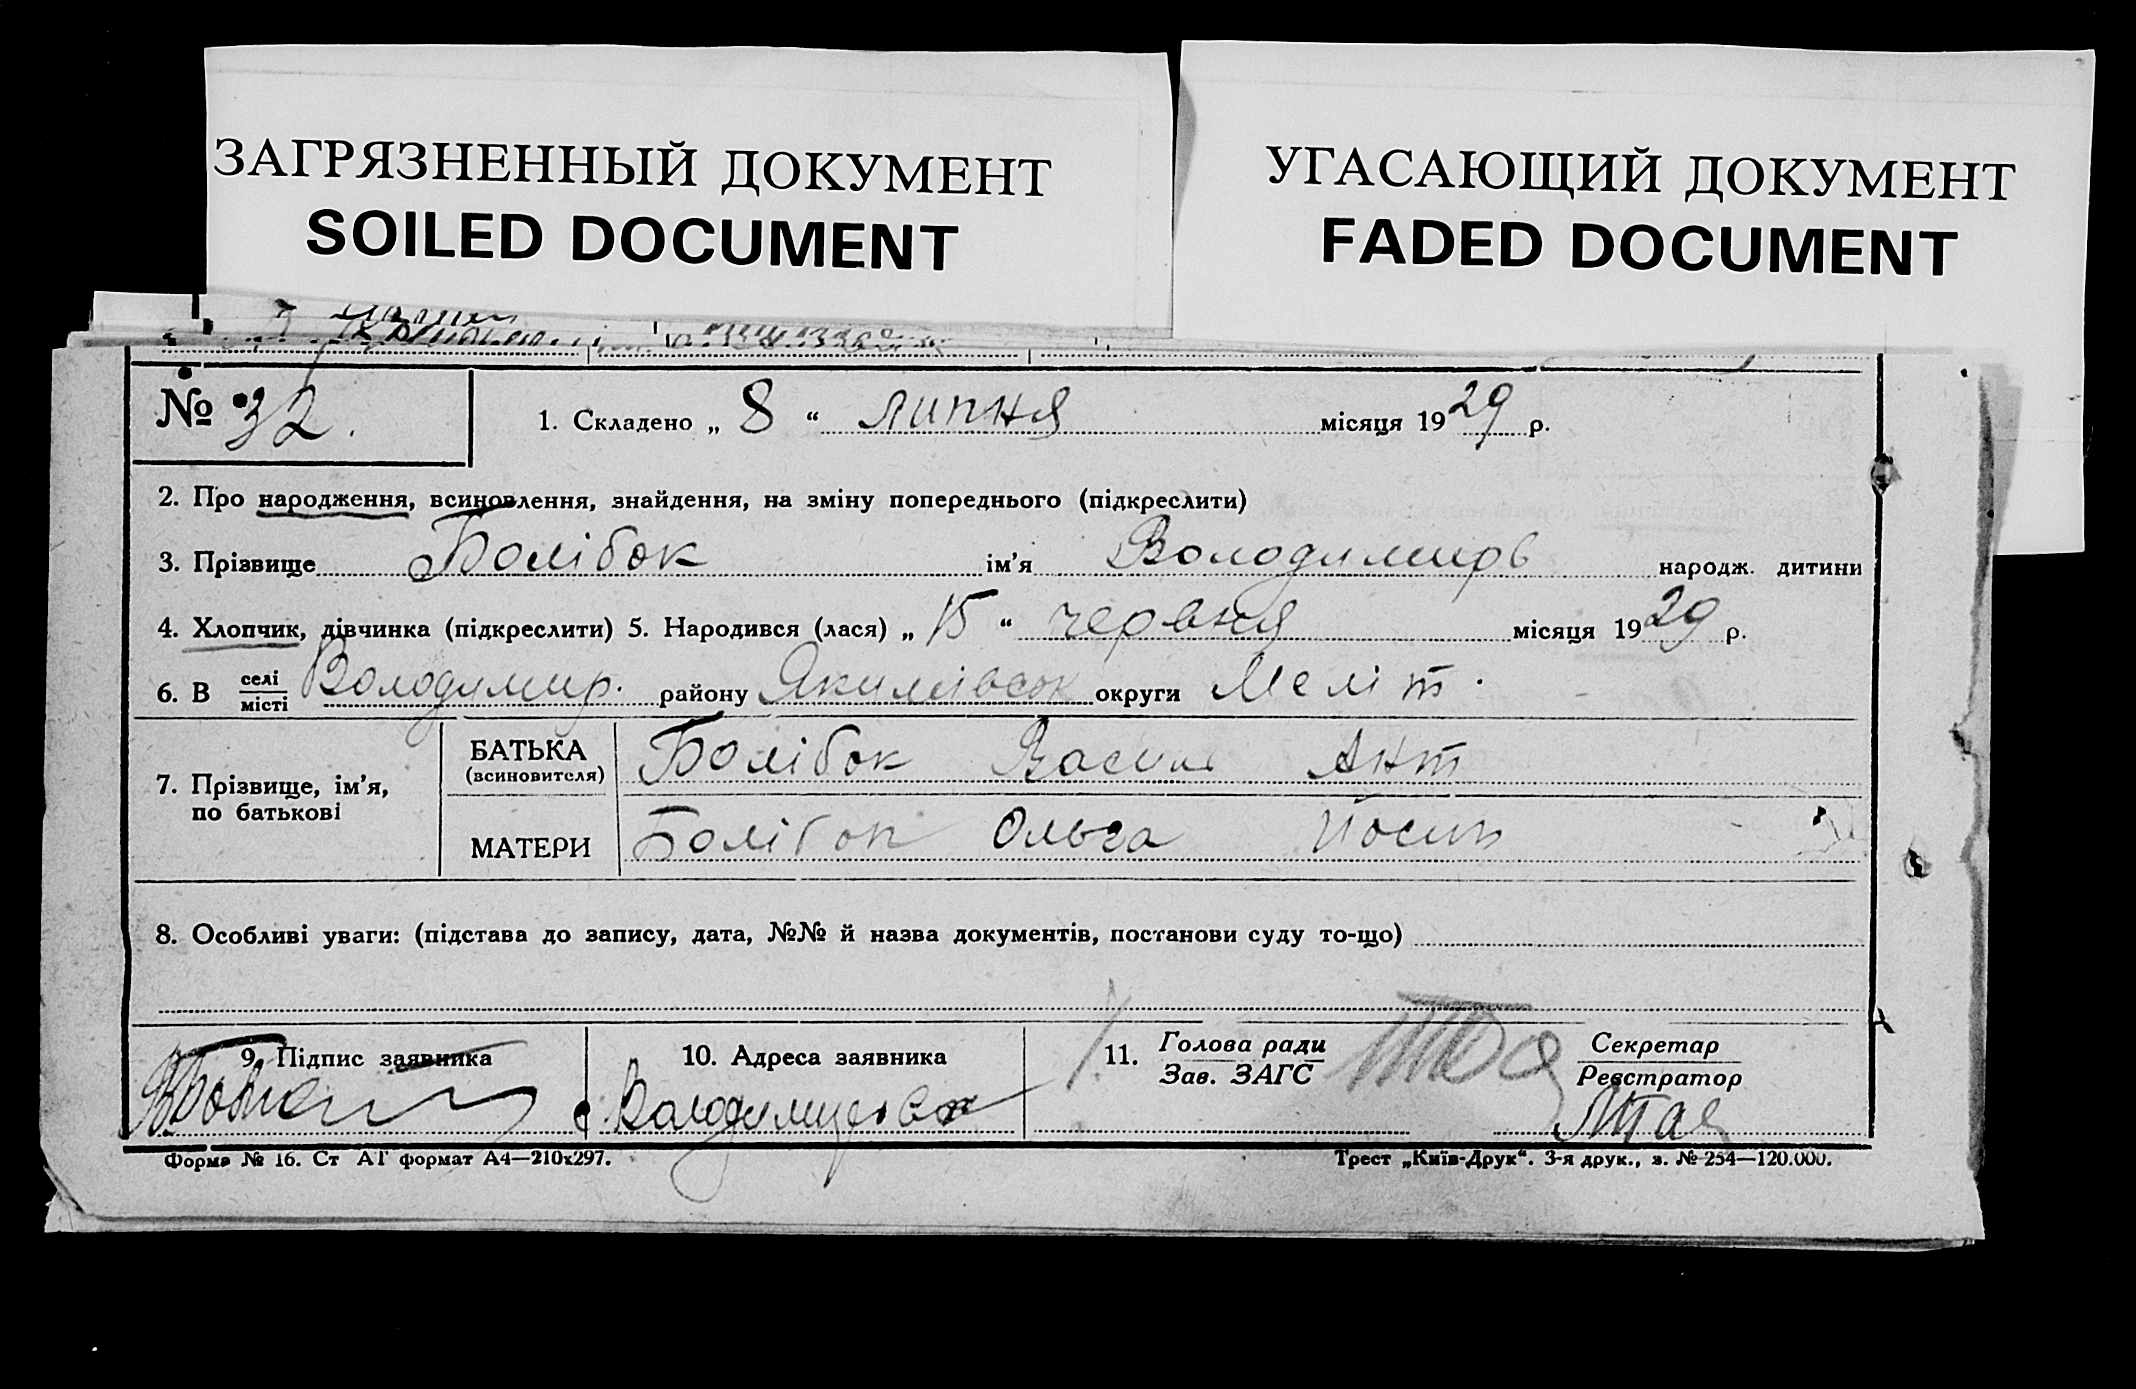 ЗАГРЯЗНЕННЫЙ ДОКУМЕНТ
SOILED DOCUMENT
УГАСАЮЩИЙ ДОКУМЕНТ
FADED DOCUMENT
№ 32. 1. Складено „ 8 “ липня місяця 1929 р.
2. Про народження, всиновлення, знайдення, на зміну попереднього (підкреслити)
3. Прізвище Болібок ім’я Володимиръ народж. дитини
4. Хлопчик, дівчинка (підкреслити) 5. Народився (лася) „ 15 “ червня місяця 1929 р.
6. В селі місті Володимир. району Якимівсок округи Меліт.
7. Прізвище, ім’я, по батькові
БАТЬКА (всиновителя) Болібок Василь Ант
МАТЕРИ Болібок Ольга Йосип
8. Особливі уваги: (підстава до запису, дата, №№ й назва документів, постанови суду то-що)
9. Підпис заявника
10. Адреса заявника
11. Голова ради Зав. ЗАГС
Секретар Реєстратор
Форма № 16. Ст АТ формат А4—210х297.
Трест „Київ-Друк“. 3-я друк., з. № 254—120.000.